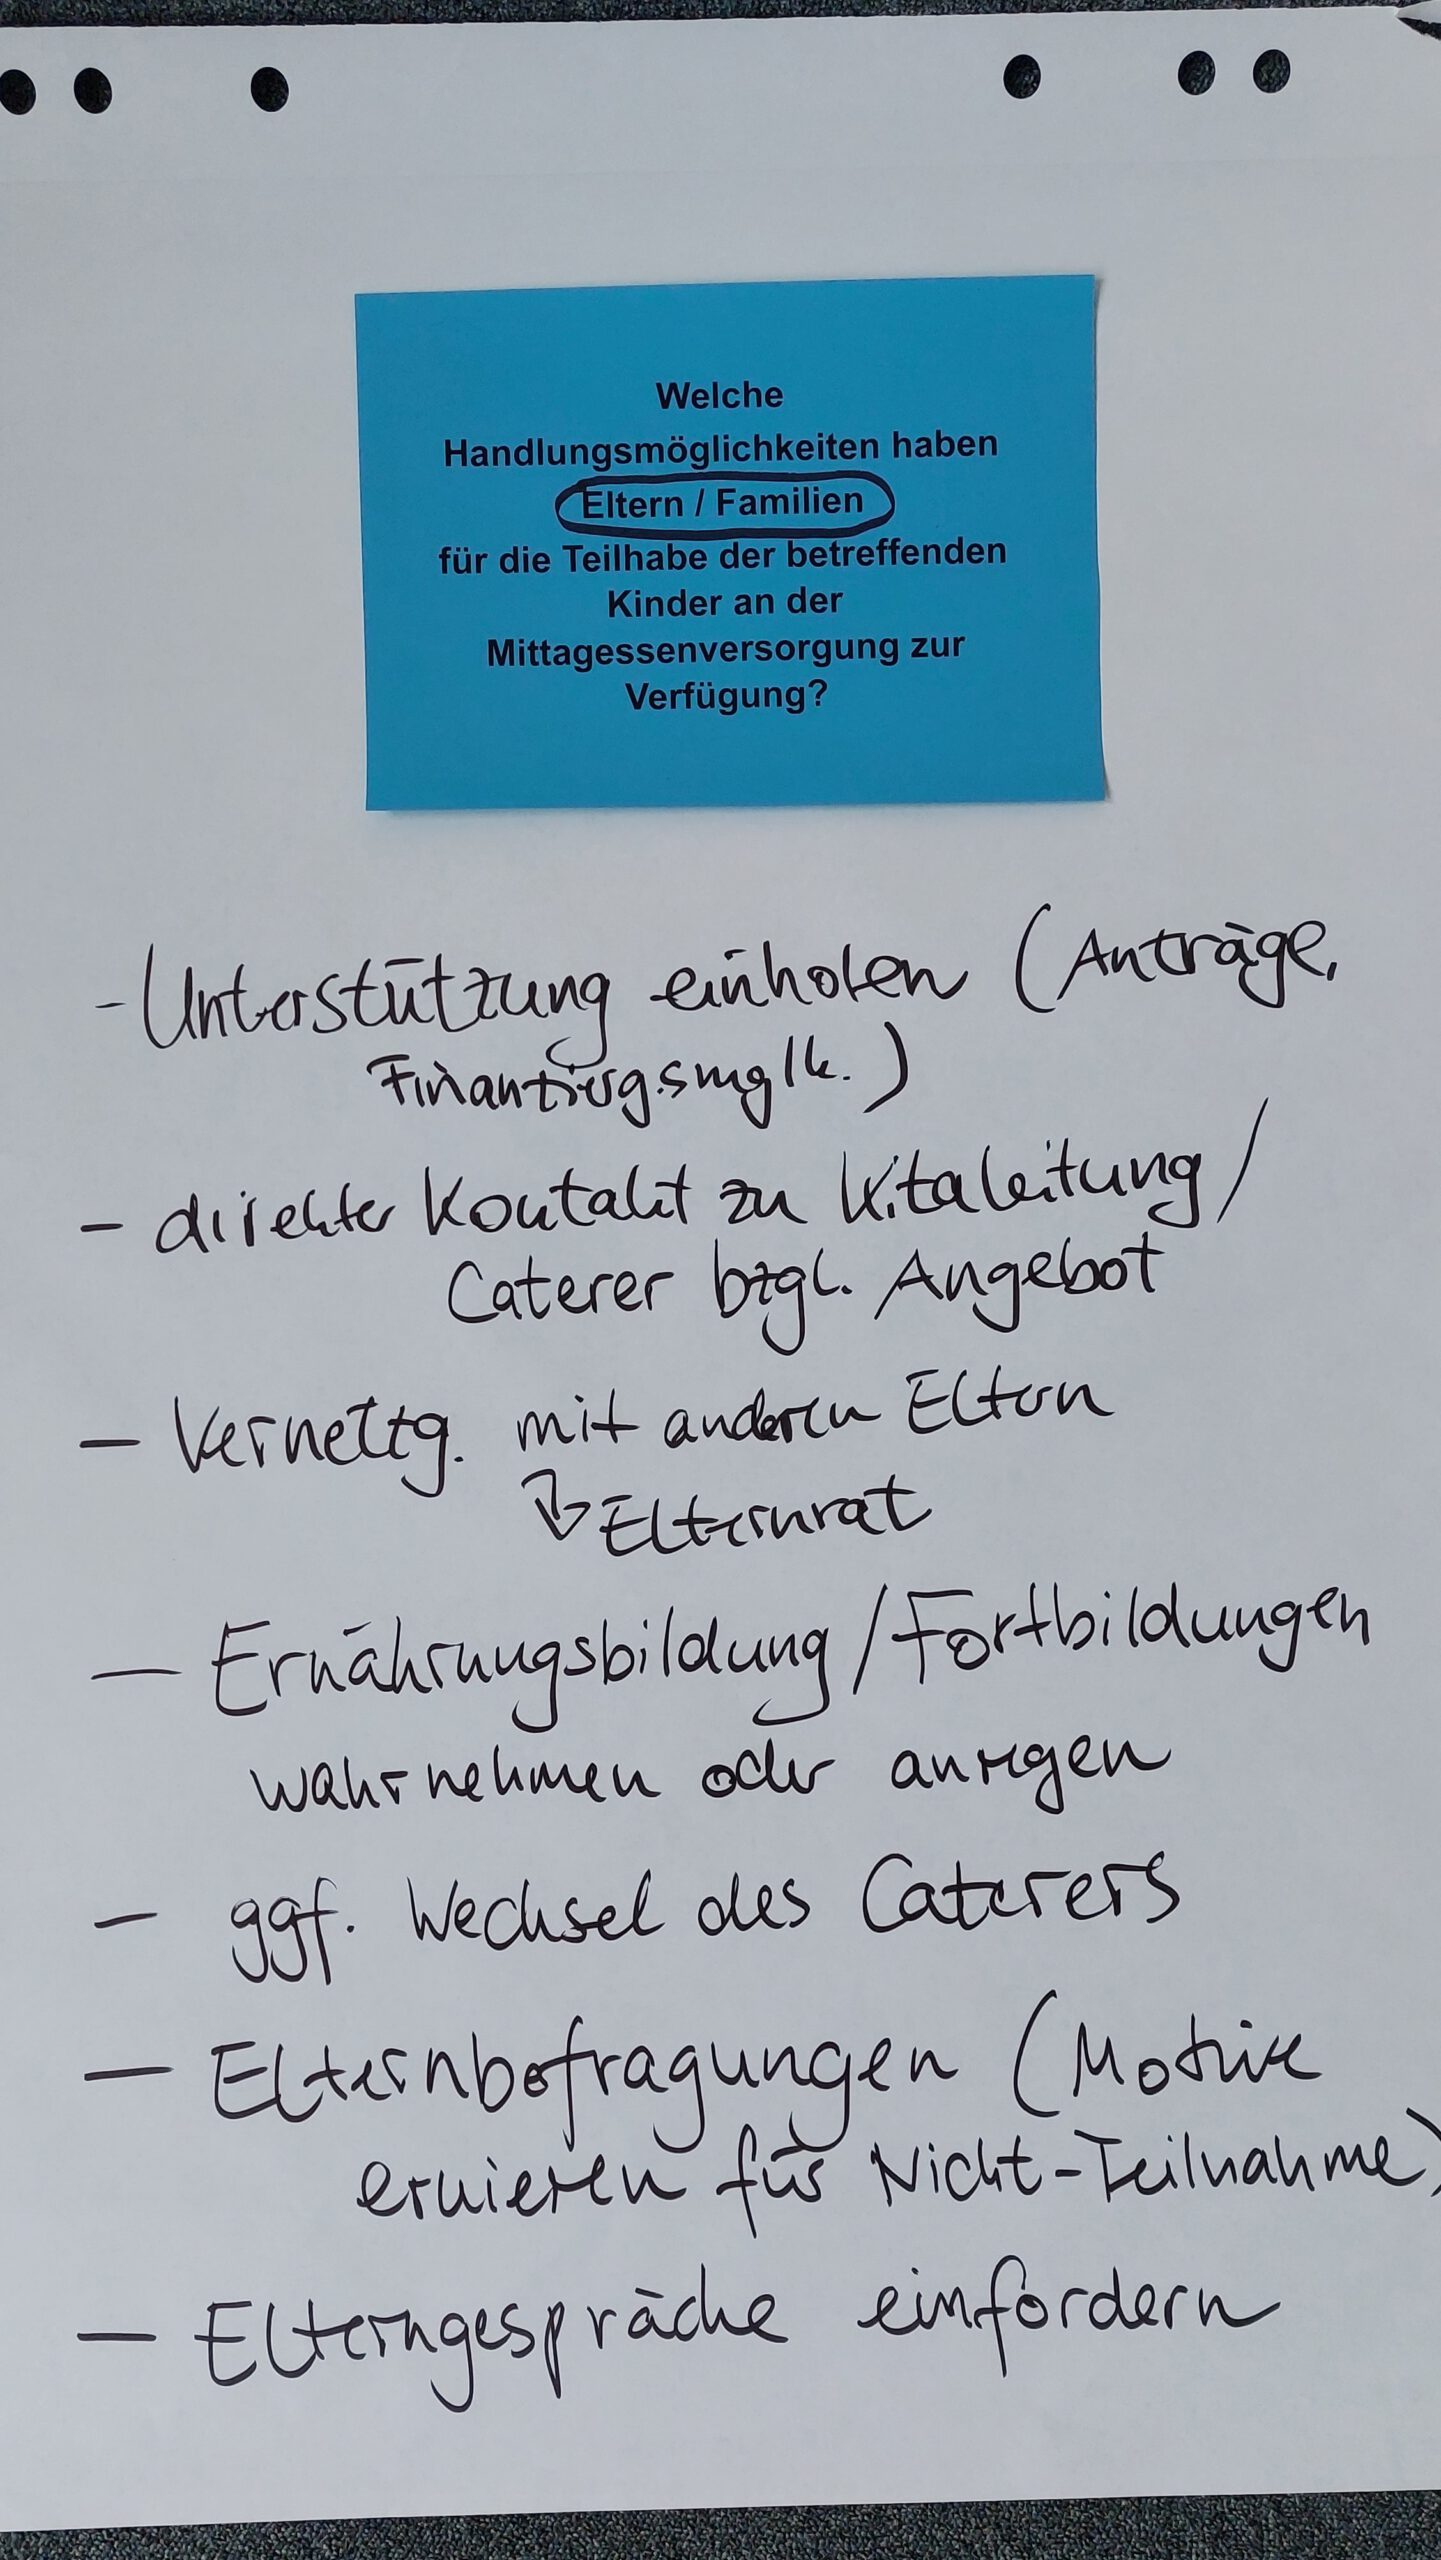 Welche
Handlungsmöglichkeiten haben
Eltern / Familien
für die Teilhabe der betreffenden
Kinder an der
Mittagessenversorgung zur
Verfügung?
- Unterstützung einholen (Anträge,
Finanziergsmglk.)
- direkter Kontakt zu Kitaleitung/
Caterer bzgl. Angebot
- Vernetzg. mit anderen Eltern
↳ Elternrat
- Ernährungsbildung/Fortbildungen
wahrnehmen oder anregen
- ggf. Wechsel des Caterers
- Elternbefragungen (Motive
eruieren für Nicht-Teilnahme)
- Elterngespräche einfordern